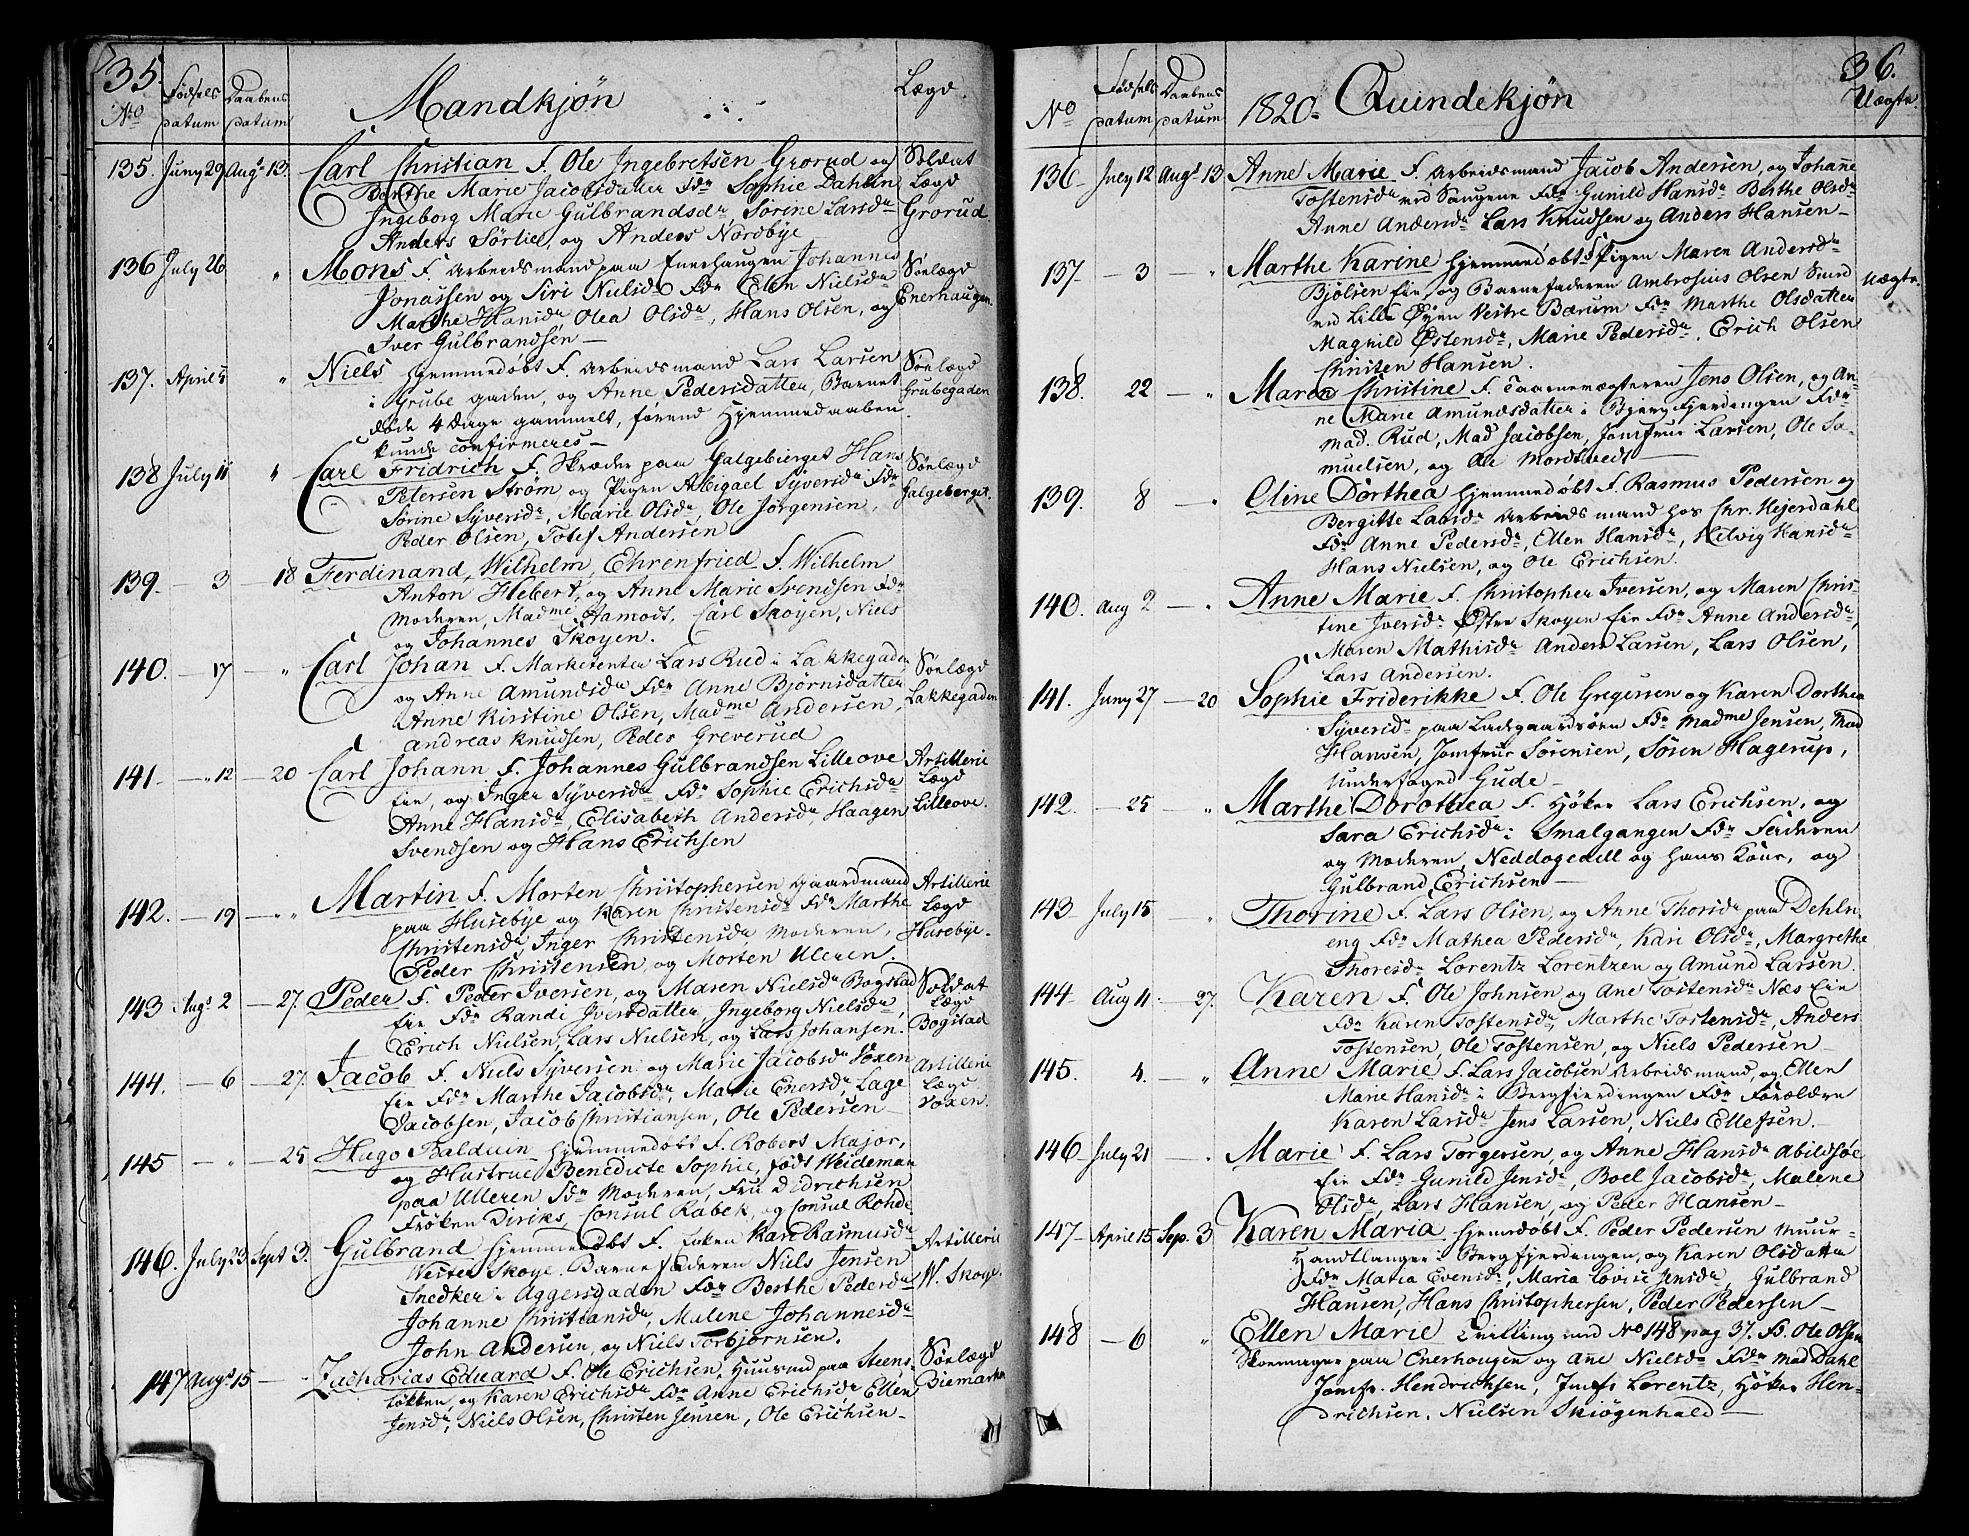 35.
No Fødsels datum Daabens datum Mandkjøn Lægd.
135. Juny 29 Augs 13. Carl Christian F. Ole Ingebretsen Grorud og Soldat
Berthe Marie Jacobsdatter Fdr Sophie Dahlin Lægd
Ingeborg Marie Gulbrandsdr, Sørine Larsdr Grorud
Anders Sørlie, og Anders Nordbye
136 July 26 " Mons F. Arbeidsmand paa Enerhaugen Johannes Søelægd
Jonassen og Siri Nielsdr Fdr Ellen Nielsdr Enerhaugen.
Marthe Hansdr Olea Olsdr, Hans Olsen, og
Iver Gulbrandsen
137. April 5 " Niels hjemmedøbt F. Arbeidsmand Lars Larsen Søelægd
i Grube gaden, og Anne Pedersdatter, Barnet Grubegaden
døde 4 dage gammelt, førend Hjemmedaaben
kunde confirmeres
138 July 11 " Carl Fridrich F. Skræder paa Galgebierget Hans Søelægd
Petersen Strøm og Pigen Abigael Syversdr Fdr Galgeberget.
Sørine Syversdr, Marie Olsdr, Ole Jørgensen,
Peder Olsen, Tolef Andersen
139. - 3 - 18 Ferdinand, Wilhelm, Ehrenfried F. Wilhelm
Anton Hebert, og Anne Marie Svendsen Fdr
Moderen, Madme Hamodt, Carl Skoyen, Niels
og Johannes Skoyen.
140. - 17 - " Carl Johan F. Marketenter Lars Rud i Lakkegaden Søelægd
og Anne Amundsdr Fdr Anne Bjørnsdatter Lakkegaden
Anne Kirstine Olsen, Madme Andersen,
Andreas Knudsen, Peder Greverud
141. - " 12 - 20 Carl Johann F. Johannes Gulbrandsen Lilleove Artillerie
Eie, og Inger Syversdr Fdr Sophie Erichsdr Lægd
Anne Hansdr, Elisabeth Andersdr, Haagen Lilleove.
Svendsen og Hans Erichsen
142. - 19 - " Martin F. Morten Christophersen Gaardmand Artillerie
paa Husebye og Karen Christensdr Fdr Marthe Lægd
Christensdr, Inger Christensdr, Moderen, Husebye.
Peder Christensen, og Morten Ulleren.
143 Augs 2 - 27. Peder F. Peder Iversen, og Maren Nielsdr Bogstad Soldat
Eie Fdr Randi Iversdatter, Ingeborg Nielsdr, Lægd
Erich Nielsen, Lars Nielsen, og Lars Johansen. Bogstad
144. - 6 - 27. Jacob F. Niels Syversen og Marie Jacobsdr Voxen Artillerie
Eie Fdr Marthe Jacobsdr, Marie Enersdr, Lage Lægd
Jacobsen, Jacob Christiansen, Ole Pedersen Voxen.
145 - " - 25 Hugo Balduin hjemmedøbt F. Robert Major,
og Hustrue Benedicte Sophie, født Weideman
paa Ulleren Fdr Moderen, Fru Didrichsen
Frøken Diriks, Consul Rabek, og Consul Rohde
146. July 23 Sept 3. Gulbrand hjemmedøbt F. Enken Kari Rasmusdr Artillerie
Wester Skoye. Barnefaderen Niels Jensen W. Skoye.
Snedker i Aggersgaden Fdr Berthe Pedersdr
Johanne Christiansdr, Malene Johannesdr
John Andersen, og Niels Torbjørnsen.
147 Augs 15 - Zacharias Eduard F. Ole Erichsen, Huusmd paa Steens- Søelægd
løkken, og Karen Erichsdr Fdr Anne Erichsdr Ellen Biemarken
Jensdr, Niels Olsen, Christen Jensen, Ole Erichsen
36.
No Fødsels datum Daabens datum 1820. Quindekjøn Uægte.
136 July 12 Augs 13 Anne Marie F. Arbeidsmand Jacob Andersen, og Johanne
Tostensdr ved Saugene Fdr Gunild Hansdr Berthe Olsdr
Anne Andersdr Lars Knudsen og Anders Hansen
137 - 3 - " Marthe Karine hjemmedøbt F. Pigen Maren Andersdr
Bjølsen Eie, og Barnefaderen Ambrosius Olsen Smed Uægte
ved Lille Øyen Vestre Barum Fdr Marthe Olsdatter
Magnild Østensdr, Marie Pedersdr, Erich Olsen
Christen Hansen.
138. 22 - " Maren Christine F. Taarnevægteren Jens Olsen, og An-
ne Marie Amundsdatter i Bjerg Fjerdingen Fdr
Mad. Rud, Mad Jacobsen, Jomfrue Larsen, Ole Sa-
muelsen, og Ole Mordtvedt
139. 8 " Eline Dorthea hjemmedøbt F. Rasmus Pedersen og
Bergitte Larsdr Arbeidsmand hos Chr. Hejerdahl
Fdr Anne Pedersdr, Ellen Hansdr, Helvig Hansdr
Hans Nielsen, og Ole Erichsen.
140. Aug 2 - " Anne Marie F. Christopher Iversen, og Maren Chris-
tine Iversdr Østre Skoyen Eie Fdr Anne Andersdr,
Maren Mathisdr Anders Larsen, Lars Olsen,
Lars Andersen.
141. Juny 27 - 20 Sophie Friderikke F. Ole Gregersen og Karen Dorthea
Syversdr paa Ladgaardsøen Fdr Madme Jensen, Mad
Hansen, Jomfrue Sørensen, Søren Hagerup,
Underfoged Gude
142. - 25 " Marthe Dorothea F. Høker Lars Erichsen, og
Sara Erichsdr i Smalgangen Fdr Faderen
og Moderen, Neddogedell og hans Kone, og
Gulbrand Erichsen
143 July 15 " Thorine F. Lars Olsen, og Anne Thorsdr paa Dehln
eng Fdr Mathea Pedersdr, Kari Olsdr, Margrethe
Thoresdr Lorentz Lorentzen og Amund Larsen.
144 Aug 11 - 27. Karen F. Ole Johnsen og Ane Tostensdr Næs Eie
Fdr Karen Tostensdr, Marthe Tostensdr, Anders
Tostensen, Ole Tostensen, og Niels Pedersen
145. 4. - " Anne Marie F. Lars Jacobsen Arbeidsmand, og Ellen
Marie Hansdr i Bergfierdingen Fdr Forældre
Karen Larsdr Jens Larsen, Niels Ellefsen.
146 July 21 - Marie F. Lars Torgersen, og Anne Hansdr Abildsøe
Eie Fdr Gunild Jensdr, Boel Jacobsdr, Malene
Olsdr, Lars Hansen, og Peder Hansen
147 April 15 Sep. 3 Karen Maria hjemdøbt F. Peder Pedersen Muur-
Handtlanger i Bergfjerdingen, og Karen Olsdatter
Fdr Maria Evensdr, Maria Lovise Jensdr, Gulbrand
Hansen, Hans Christophersen, Peder Pedersen
148 - 6 " Ellen Marie Tvilling med No 148 pag 37. F. Ole Olsen
Skoemager paa Enerhougen og Ane Nielsdr Fdr Mad Dahl
Jomfr. Hendrichsen, Jomfr Lorentz, Høker Hen-
drichsen, Nielsen Skiøgenhald